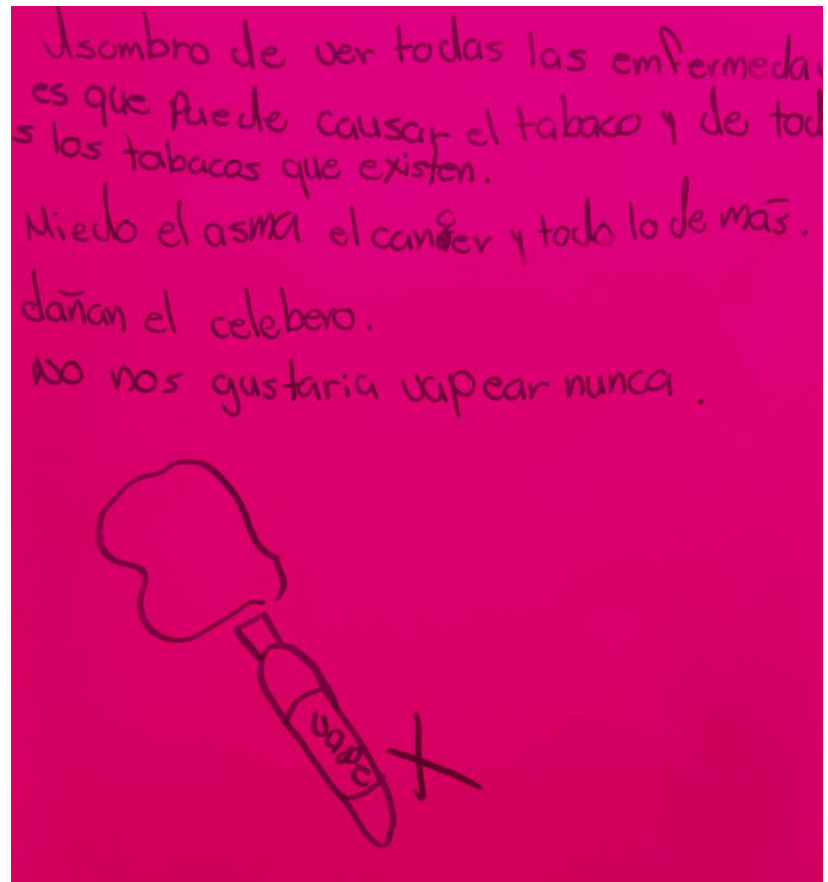 Asombro de ver todas las emfermeda
es que Puede causar el tabaco y de tod
s los tabacos que existen.
Miedo el asma el cancer y todo lo de más.
dañan el celebero.
NO nos gustaria vapear nunca.
vape